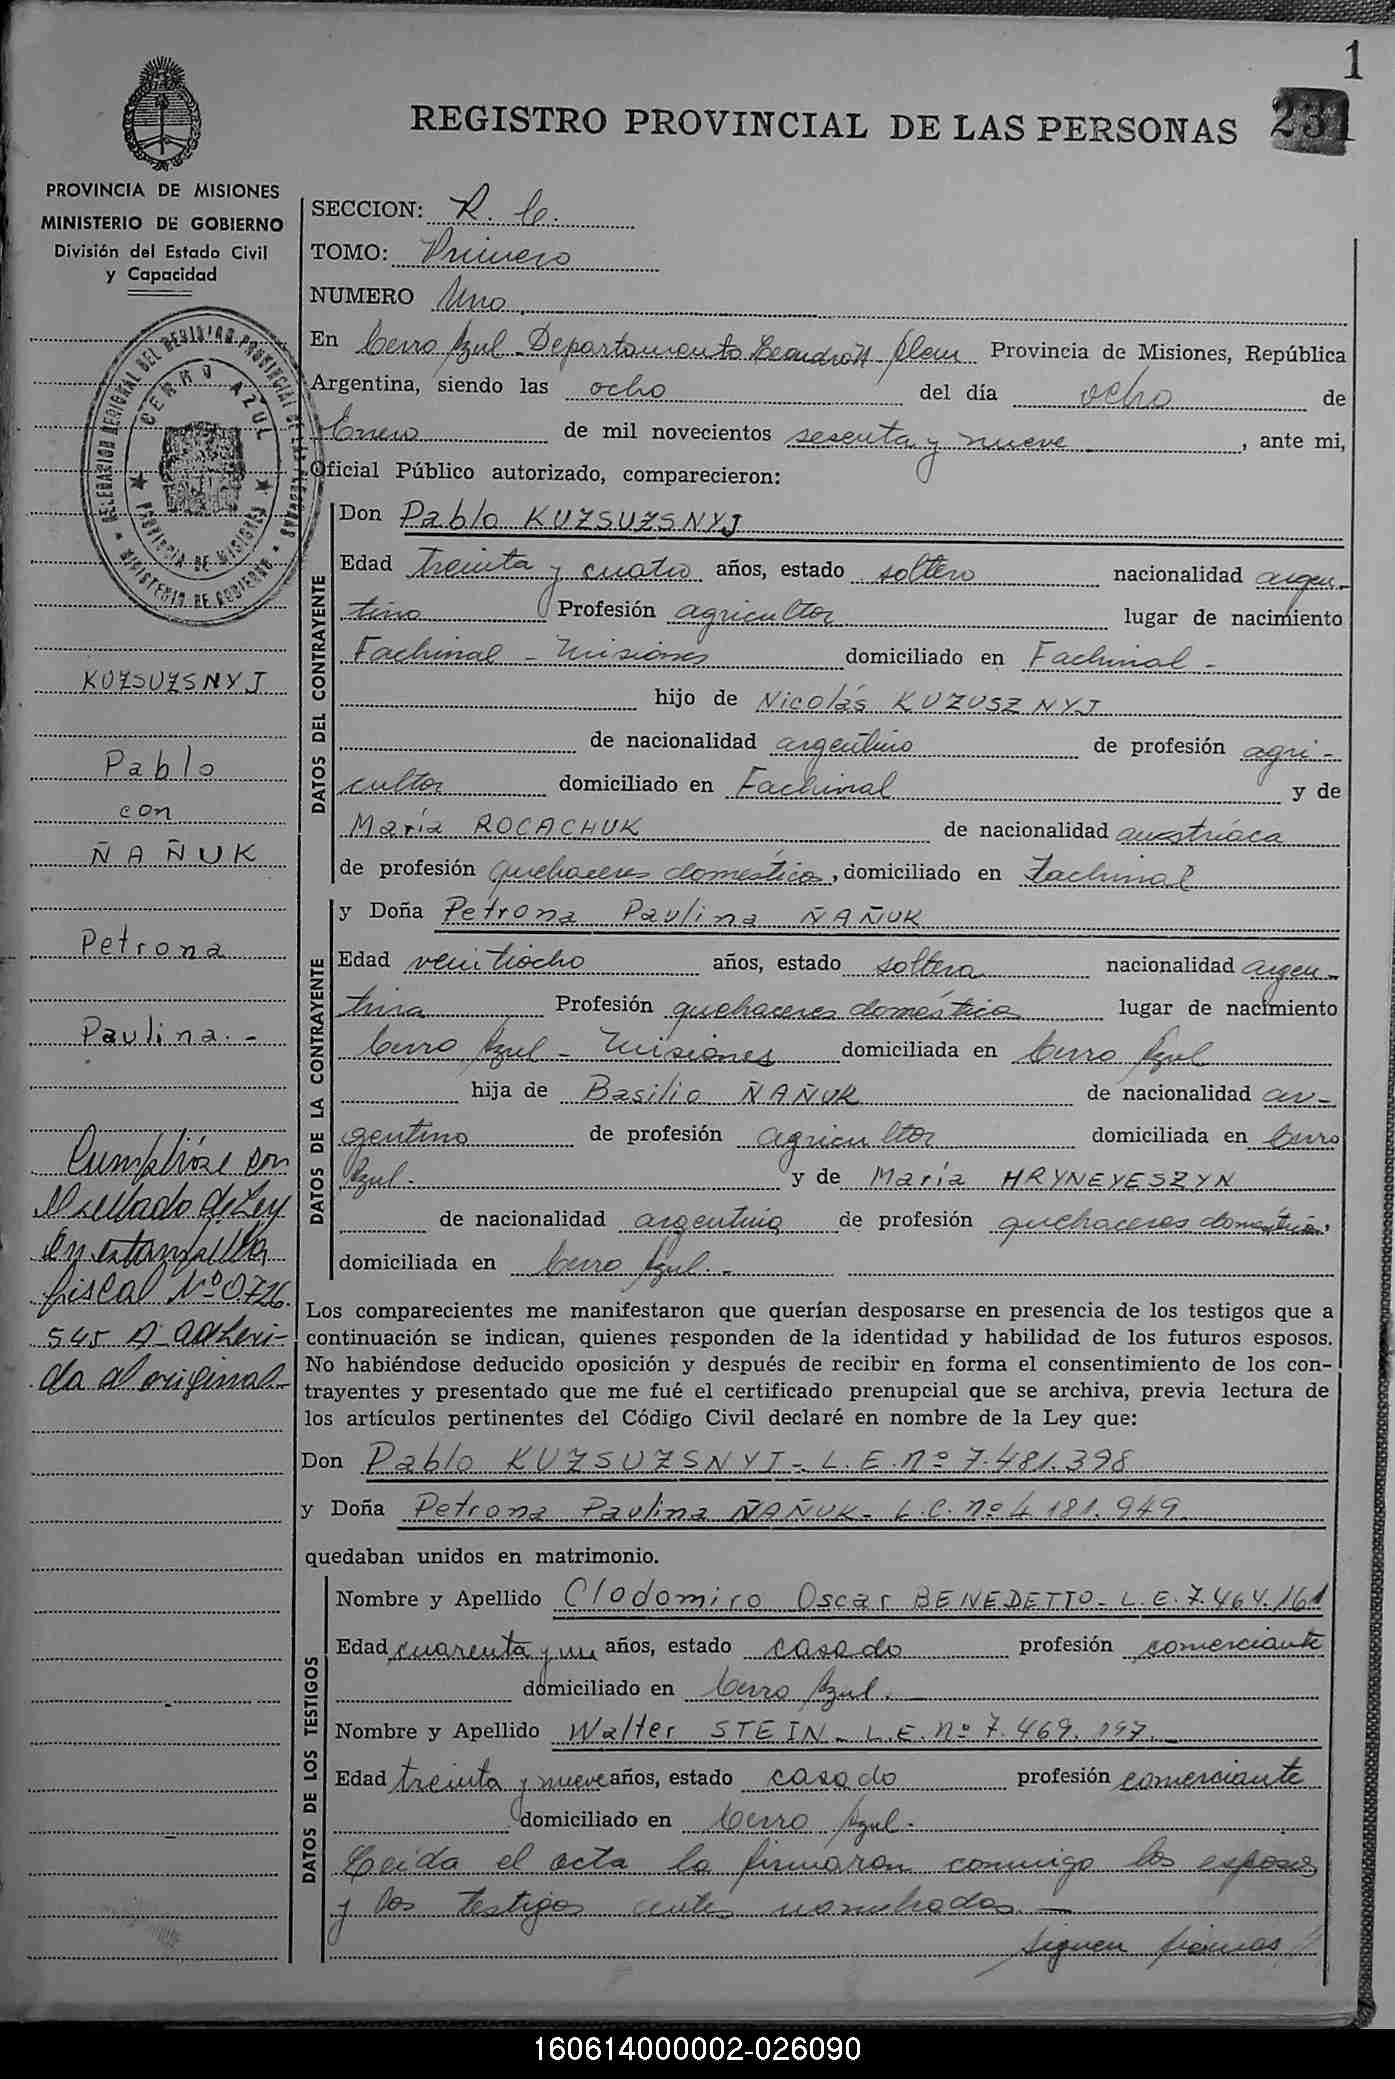 1
REGISTRO PROVINCIAL DE LAS PERSONAS
231
PROVINCIA DE MISIONES
MINISTERIO DE GOBIERNO
División del Estado Civil
y Capacidad
DELEGACION REGIONAL DEL REGISTRO PROVINCIAL DE LAS PERSONAS
CERRO AZUL
PROVINCIA DE MISIONES
MINISTERIO DE GOBIERNO
KUZSUZSNYJ
Pablo
con
ÑAÑUK
Petrona
Paulina.-
Cumplióse con
el sellado de Ley
en estampilla
fiscal Nº 0726
545 A adheri-
da al original
SECCION: R. C.
TOMO: Primero
NUMERO Uno
En Cerro Azul - Departamento Leandro N. Alem Provincia de Misiones, República
Argentina, siendo las ocho del día ocho de
Enero de mil novecientos sesenta y nueve, ante mi,
Oficial Público autorizado, comparecieron:
DATOS DEL CONTRAYENTE
Don Pablo KUZSUZSNYJ
Edad treinta y cuatro años, estado soltero nacionalidad argen-
tino Profesión agricultor lugar de nacimiento
Fachinal - Misiones domiciliado en Fachinal -
hijo de Nicolás KUZUSZNYJ
de nacionalidad argentino de profesión agri-
cultor domiciliado en Fachinal y de
María ROCACHUK de nacionalidad austríaca
de profesión quehaceres domésticos, domiciliado en Fachinal
DATOS DE LA CONTRAYENTE
y Doña Petrona Paulina ÑAÑUK
Edad veintiocho años, estado soltera nacionalidad argen-
tina Profesión quehaceres domésticos lugar de nacimiento
Cerro Azul - Misiones domiciliada en Cerro Azul
hija de Basilio ÑAÑUK de nacionalidad ar-
gentino de profesión agricultor domiciliada en Cerro
Azul.- y de María HRYNEYESZYN
de nacionalidad argentina de profesión quehaceres domésticos,
domiciliada en Cerro Azul.-
Los comparecientes me manifestaron que querían desposarse en presencia de los testigos que a
continuación se indican, quienes responden de la identidad y habilidad de los futuros esposos.
No habiéndose deducido oposición y después de recibir en forma el consentimiento de los con-
trayentes y presentado que me fué el certificado prenupcial que se archiva, previa lectura de
los artículos pertinentes del Código Civil declaré en nombre de la Ley que:
Don Pablo KUZSUZSNYJ - L.E. nº 7.481.398
y Doña Petrona Paulina ÑAÑUK - L.C. nº 4.181.949
quedaban unidos en matrimonio.
DATOS DE LOS TESTIGOS
Nombre y Apellido Clodomiro Oscar BENEDETTO - L.E. 7.464.161
Edad cuarenta y un años, estado casado profesión comerciante
domiciliado en Cerro Azul.
Nombre y Apellido Walter STEIN - L.E. nº 7.469.197
Edad treinta y nueve años, estado casado profesión comerciante
domiciliado en Cerro Azul.-
Leída el acta la firmaron conmigo los esposos
y los testigos antes nombrados.-
siguen firmas
160614000002-026090